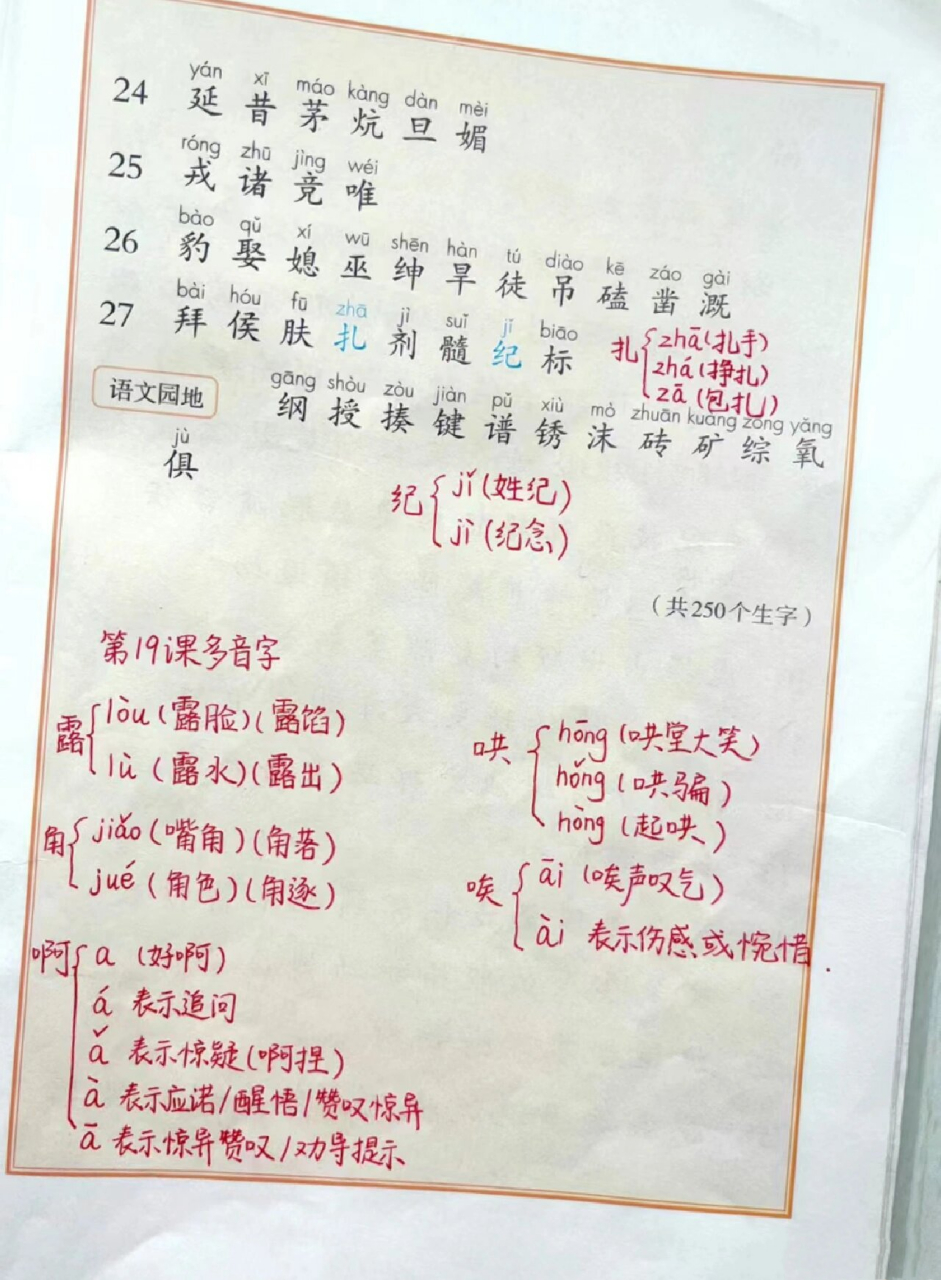 yán xī máo kàng dàn mèi
24 延 昔 茅 炕 旦 媚
róng zhū jìng wéi
25 戎 诸 竞 唯
bào qǔ xí wū shēn hàn tú diào kē záo gài
26 豹 娶 媳 巫 绅 旱 徒 吊 磕 凿 溉
bài hóu fū zhā jì suǐ jǐ biāo
27 拜 侯 肤 扎 剂 髓 纪 标
扎 zhā (扎手)
zhá (挣扎)
zā (包扎)
gāng shòu zòu jiàn pǔ xiù mò zhuān kuàng zōng yǎng
语文园地 纲 授 揍 键 谱 锈 沫 砖 矿 综 氧
jù
俱
纪 jǐ (姓纪)
jì (纪念)
(共250个生字)
第19课多音字
露 lòu (露脸) (露馅)
lù (露水) (露出)
角 jiǎo (嘴角) (角落)
jué (角色) (角逐)
啊 a (好啊)
á 表示追问
ǎ 表示惊疑 (啊捏)
à 表示应诺/醒悟/赞叹惊异
ā 表示惊异赞叹/劝导提示
哄 hōng (哄堂大笑)
hǒng (哄骗)
hòng (起哄)
唉 āi (唉声叹气)
ài 表示伤感或惋惜.